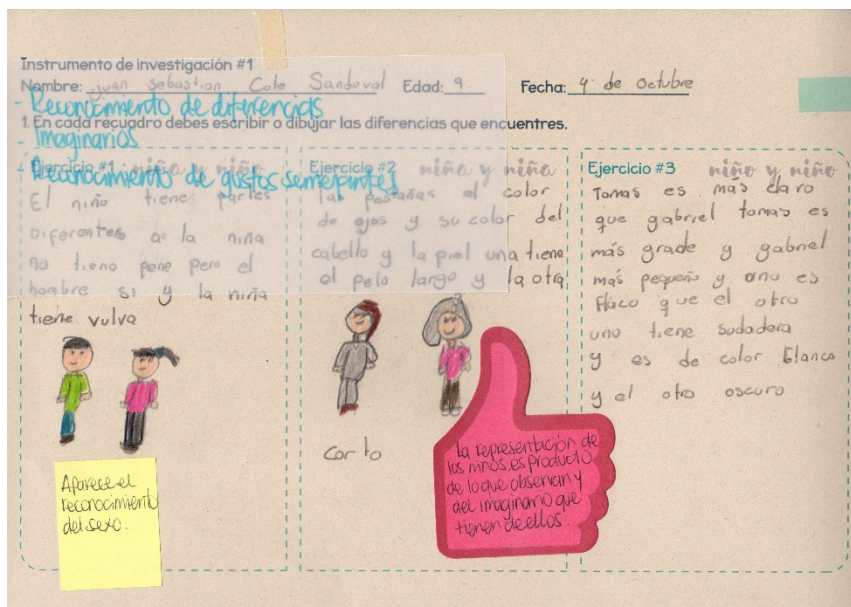 Instrumento de investigación #1
Nombre: Juan Sebastian Cote Sandoval Edad: 9 Fecha: 4 de octubre
- Reconocimiento de diferencias
1. En cada recuadro debes escribir o dibujar las diferencias que encuentres.
- Imaginarios
- Reconocimiento de gustos semejantes
Ejercicio #1 niña y niño
El niño tiene partes
Diferentes a la niña
no tiene pene pero el
hombre si y la niña
tiene vulva
Aparece el
reconocimiento
del sexo.
Ejercicio #2 niña y niña
las pestañas el color
de ojos y su color del
cabello y la piel una tiene
el pelo largo y la otra
corto
La representación de
los niños es producto
de lo que observan y
del imaginario que
tienen de ellos.
Ejercicio #3 niño y niño
Tomas es más claro
que gabriel tomas es
más grade y gabriel
más pequeño y uno es
flaco que el otro
uno tiene sudadera
y es de color blanco
y el otro oscuro